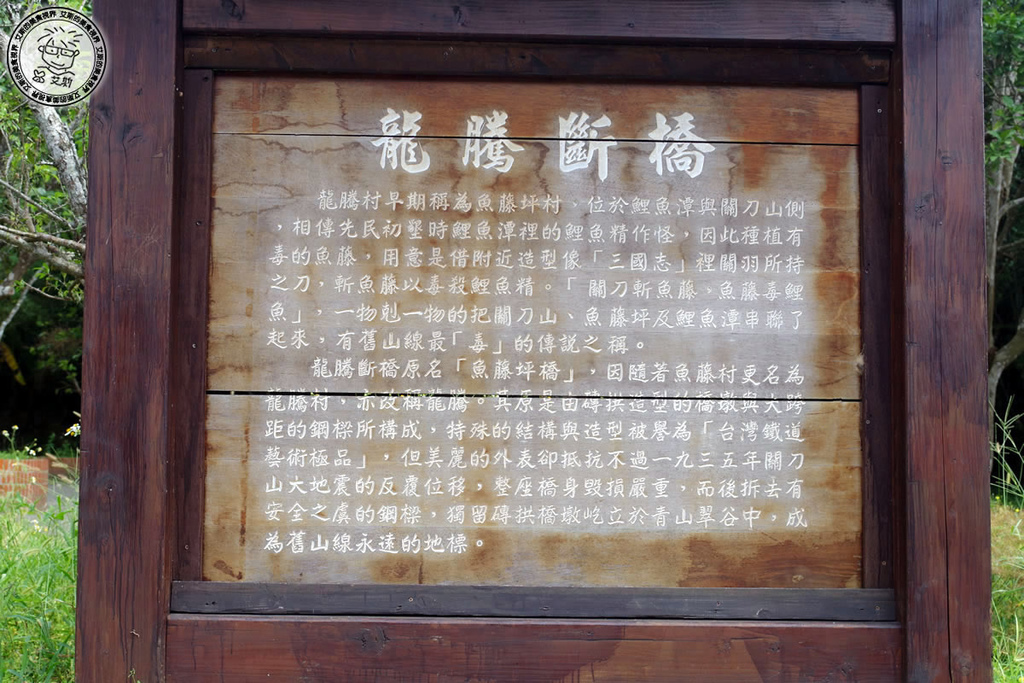 艾斯的美食視界 艾斯的美食視界 艾斯的美食視界
艾斯
龍騰斷橋
龍騰村早期稱為魚藤坪村、位於鯉魚潭與關刀山側
，相傳先民初墾時鯉魚潭裡的鯉魚精作怪，因此種植有
毒的魚藤，用意是借附近造型像「三國志」裡關羽所持
之刀，斬魚藤以毒殺鯉魚精。「關刀斬魚藤、魚藤毒鯉
魚」，一物剋一物的把關刀山、魚藤坪及鯉魚潭串聯了
起來，有舊山線最「毒」的傳說之稱。
龍騰斷橋原名「魚藤坪橋」，因隨著魚藤村更名為
龍騰村，亦改稱龍騰。其原是由磚拱造型的橋墩與大跨
距的鋼樑所構成，特殊的結構與造型被譽為「台灣鐵道
藝術極品」，但美麗的外表卻抵抗不過一九三五年關刀
山大地震的反覆位移，整座橋身毀損嚴重，而後拆去有
安全之虞的鋼樑，獨留磚拱橋墩屹立於青山翠谷中，成
為舊山線永遠的地標。